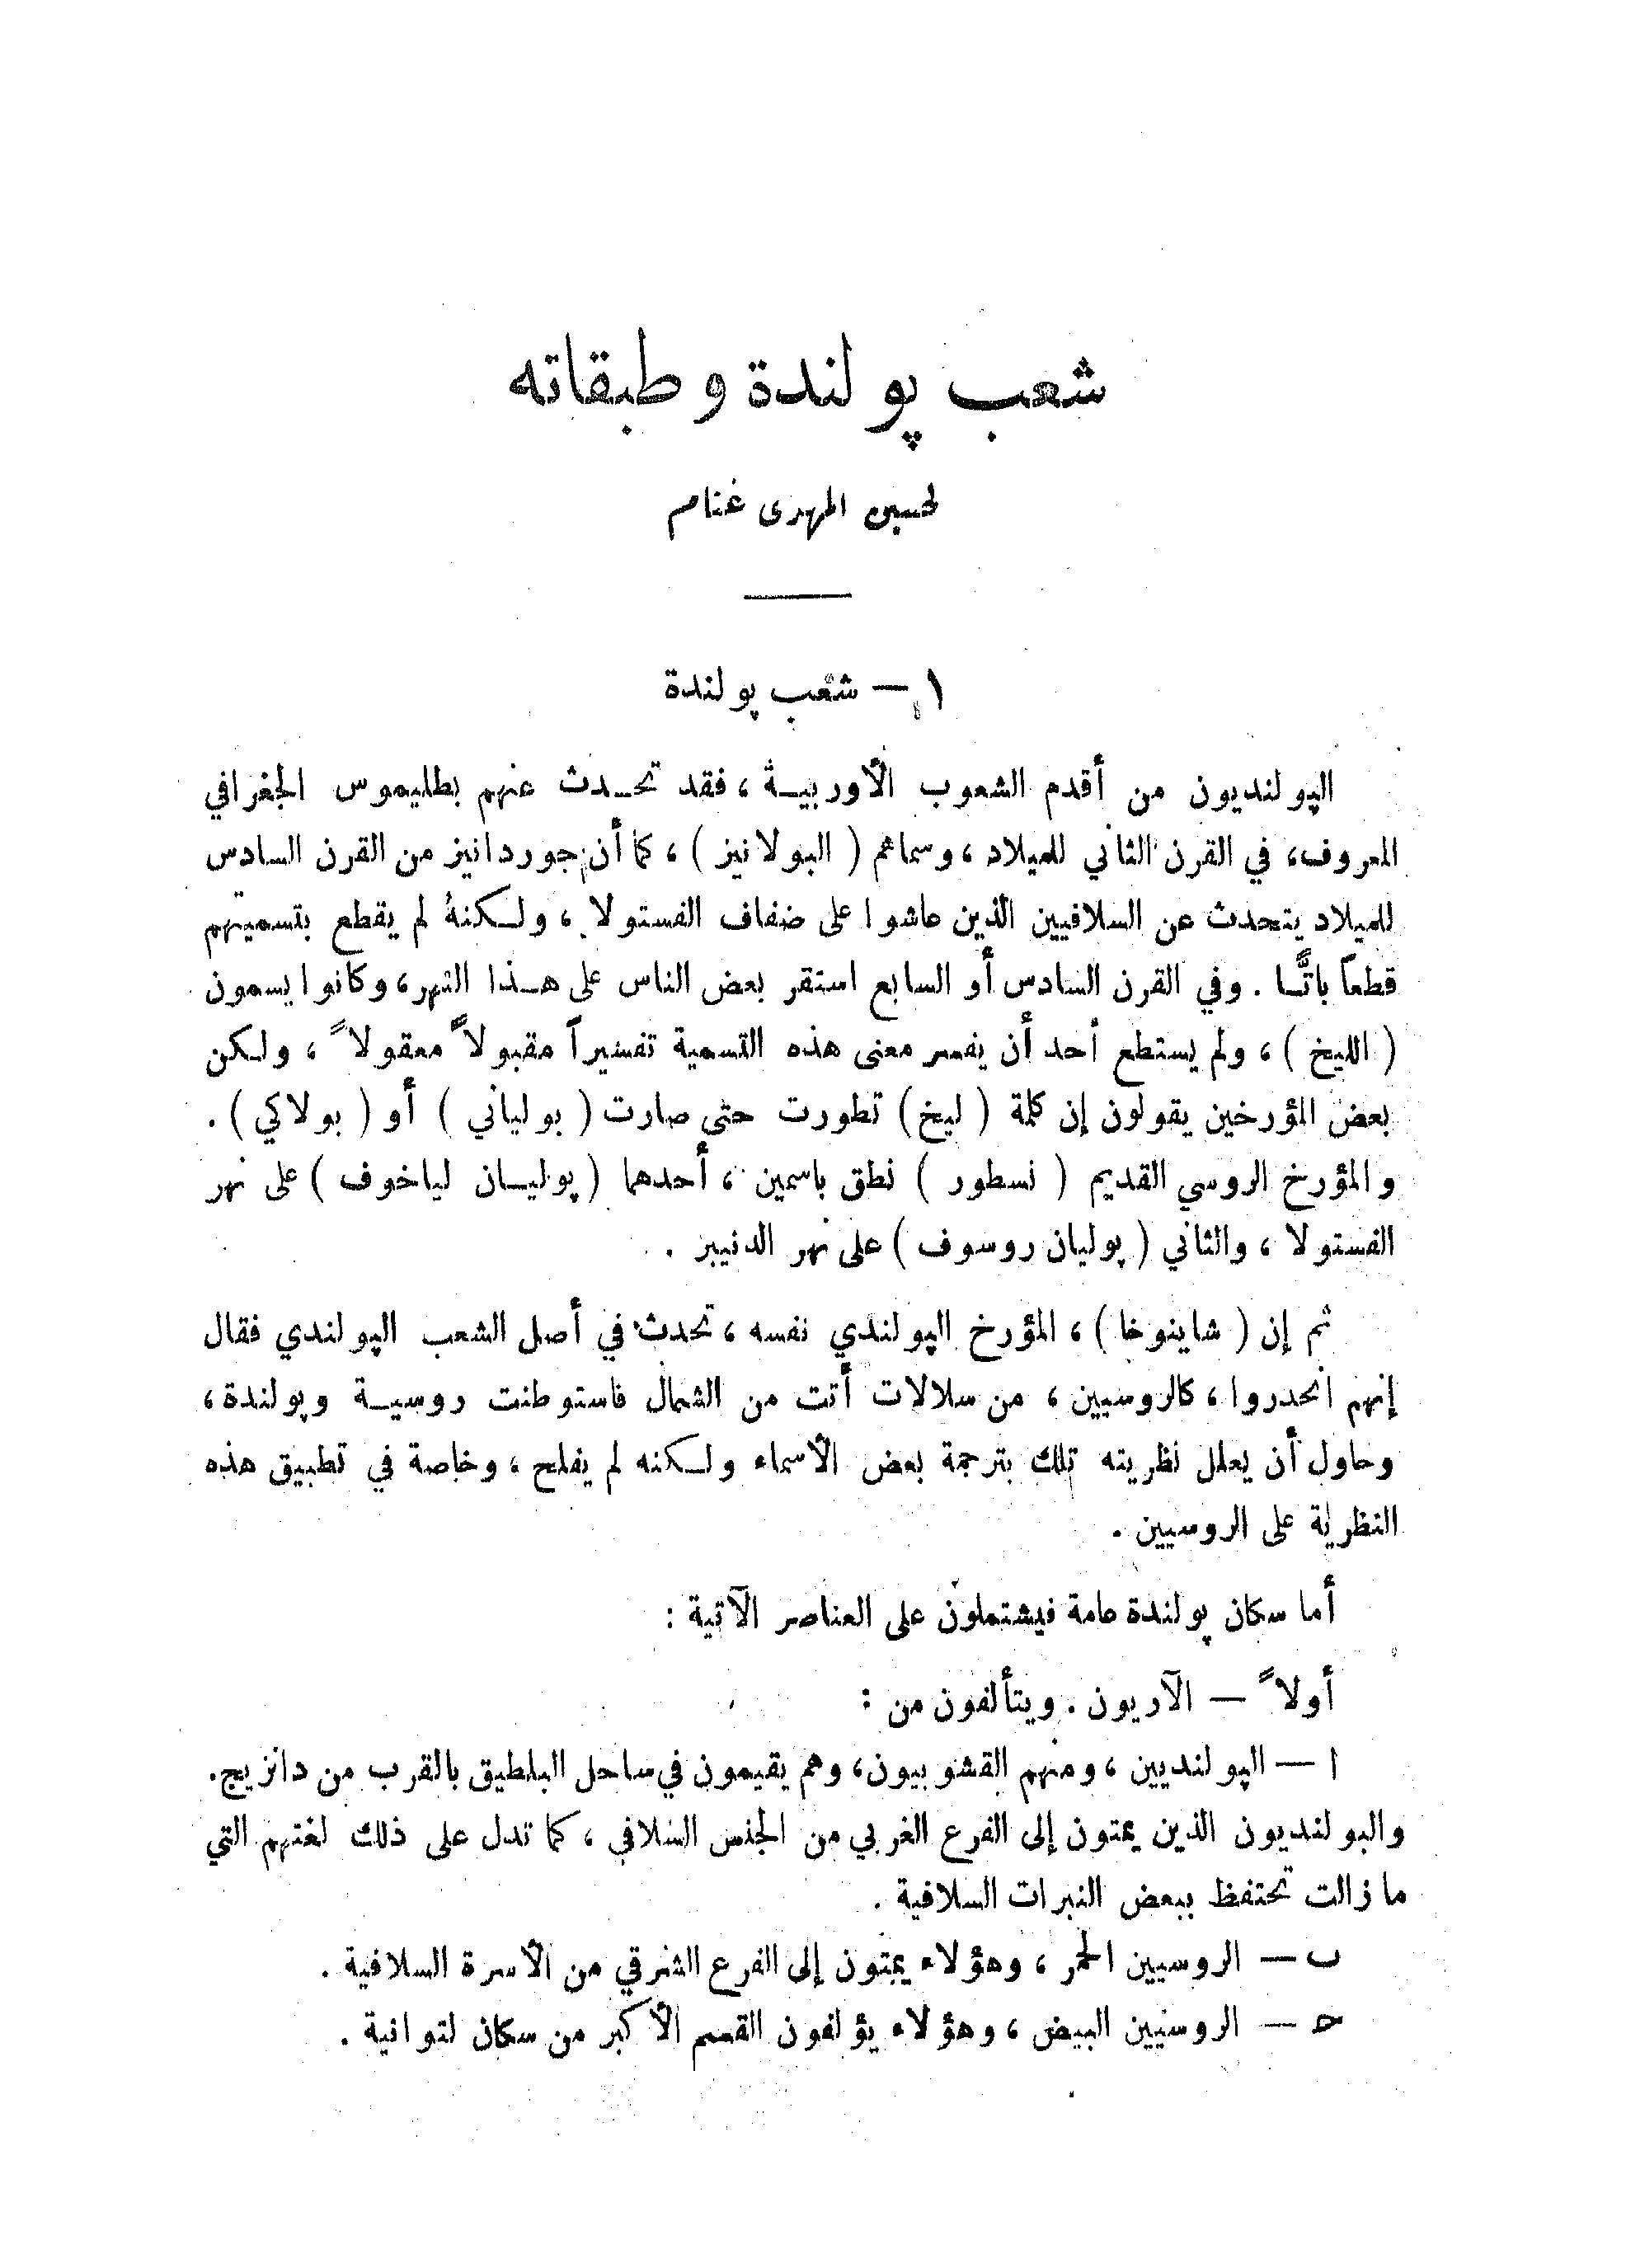 شعب پولندة وطبقاته
لحسين المهدى غنام
١ — شعب پولندة
الپولنديون من أقدم الشعوب الأوربية ، فقد تحدث عنهم بطليموس الجغرافي
المعروف، في القرن الثاني للميلاد ، وسماهم ( البولانيز ) ، كما أن جوردانيز من القرن السادس
للميلاد يتحدث عن السلافيين الذين عاشوا على ضفاف الفستولا ، ولكنهُ لم يقطع بتسميتهم
قطعاً باتًّا . وفي القرن السادس أو السابع استقر بعض الناس على هذا النهر، وكانوا يسمون
( الليخ ) ، ولم يستطع أحد أن يفسر معنى هذه التسمية تفسيراً مقبولاً معقولاً ، ولكن
بعض المؤرخين يقولون إن كلمة ( ليخ ) تطورت حتى صارت ( بولياني ) أو ( بولاكي ) .
والمؤرخ الروسي القديم ( نسطور ) نطق باسمين ، أحدهما ( پوليان لياخوف ) على نهر
الفستولا ، والثاني ( پوليان روسوف ) على نهر الدنيبر .
ثم إن ( شاينوخا ) ، المؤرخ الپولندي نفسه ، تحدث في أصل الشعب الپولندي فقال
إنهم انحدروا ، كالروسيين ، من سلالات أتت من الشمال فاستوطنت روسية وپولندة ،
وحاول أن يعلل نظريته تلك بترجمة بعض الأسماء ولكنه لم يفلح ، وخاصة في تطبيق هذه
النظرية على الروسيين .
أما سكان پولندة عامة فيشتملون على العناصر الآتية :
أولاً — الآريون . ويتألفون من :
ا — الپولنديين ، ومنهم القشوبيون، وهم يقيمون في ساحل البلطيق بالقرب من دانزيج.
والبولنديون الذين يمتون إلى الفرع الغربي من الجنس السلافي ، كما تدل على ذلك لغتهم التي
ما زالت تحتفظ ببعض النبرات السلافية .
ب — الروسيين الحمر ، وهؤلاء يمتون إلى الفرع الشرقي من الأسرة السلافية .
حـ — الروسيين البيض ، وهؤلاء يؤلفون القسم الأكبر من سكان لتوانية .